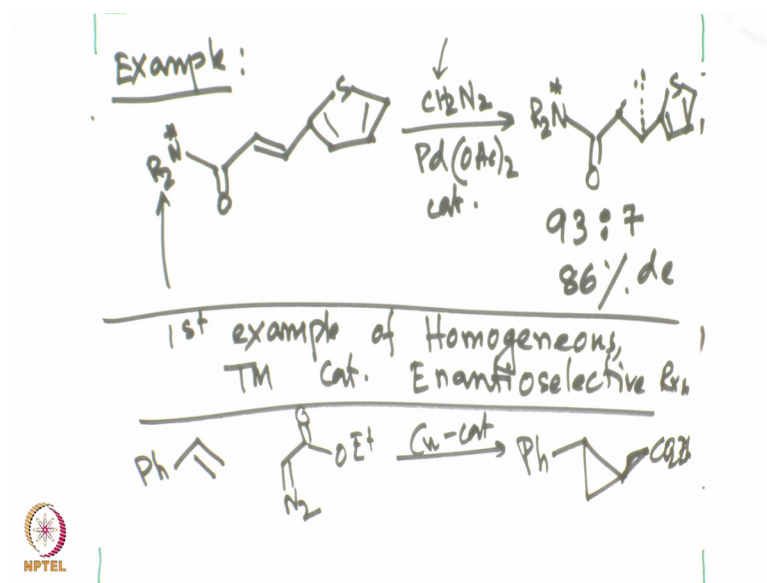 Example :
R₂N* O S
CH₂N₂
Pd(OAc)₂
cat.
R₂N* O S
93 : 7
86% de
1st example of Homogeneous,
TM cat. Enantioselective Rxn
Ph
O OEt
N₂
Cu-cat
Ph
NPTEL